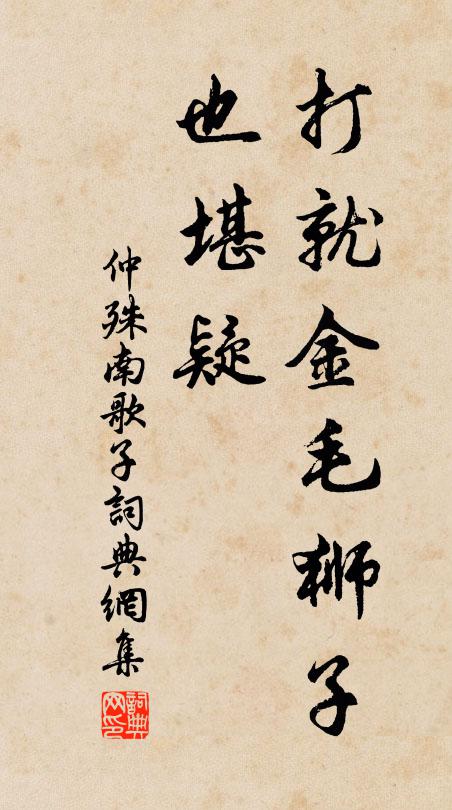 打就金毛獅子
也堪疑
仲殊南歌子詞典網集
詞典网印